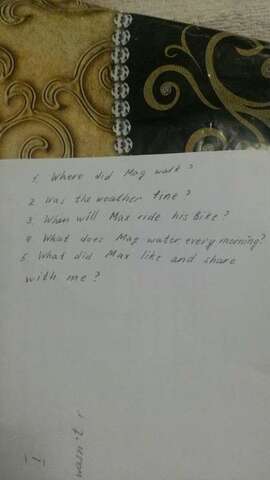 1. Where did Mag walk?
2. Was the weather fine?
3. When will Max ride his bike?
4. What does Mag water every morning?
5. What did Max like and share
with me?
wasn't,